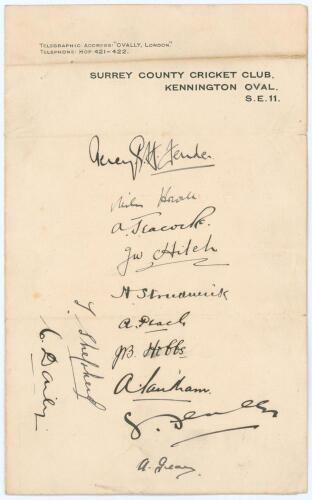 TELEGRAPHIC ADDRESS: "OVALLY, LONDON."
TELEPHONE: HOP 421–422.
SURREY COUNTY CRICKET CLUB,
KENNINGTON OVAL,
S.E.11.
Percy G H Fender
Miles Howell
A. Peacock.
J W Hitch
H Strudwick
A. Peach
J B. Hobbs
A. Sandham.
A. Geary
T. Shepherd